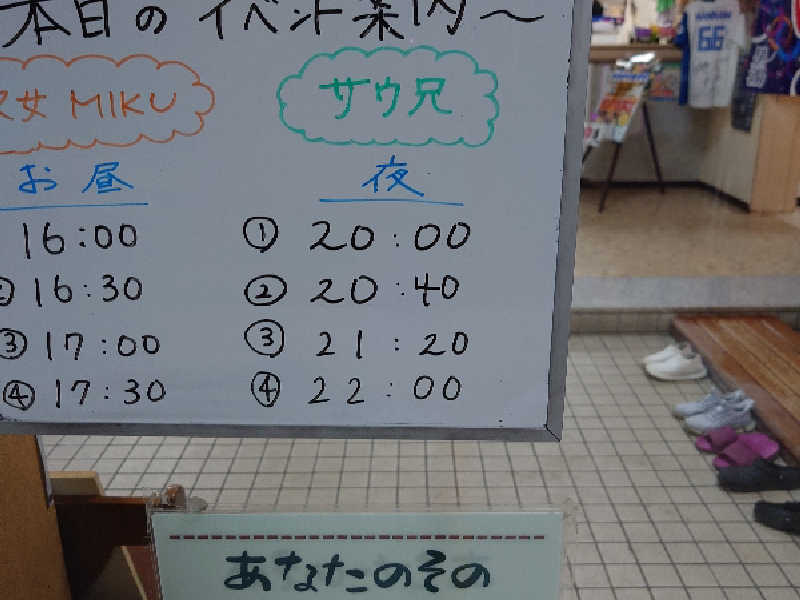 本日のイベント案内〜
女 MIKU
お昼
16:00
② 16:30
③ 17:00
④ 17:30
サウ兄
夜
① 20:00
② 20:40
③ 21:20
④ 22:00
66
あなたのその